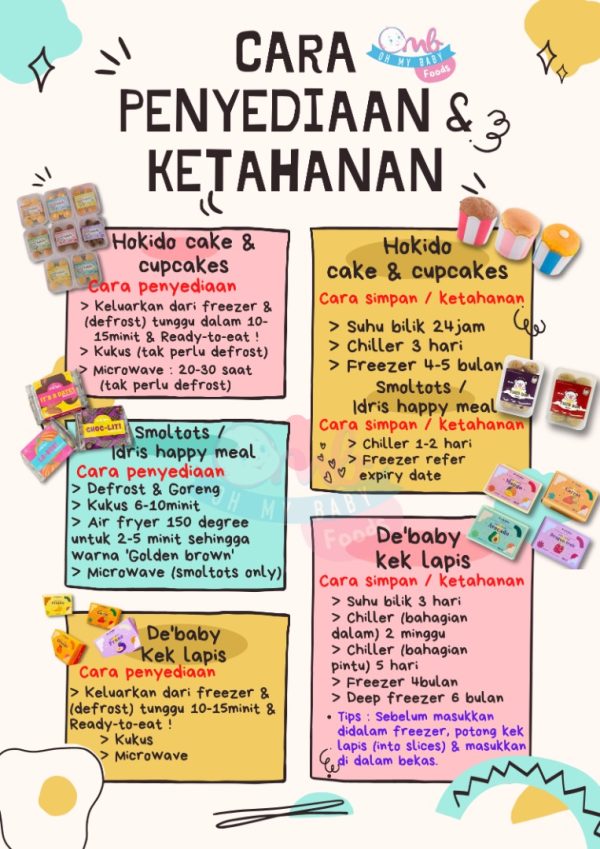 CARA
PENYEDIAAN &
KETAHANAN
OMB
OH MY BABY
Foods
Hokido cake &
cupcakes
Cara penyediaan
> Keluarkan dari freezer &
(defrost) tunggu dalam 10-
15minit & Ready-to-eat !
> Kukus (tak perlu defrost)
> Microwave : 20-30 saat
(tak perlu defrost)
Smoltots /
Idris happy meal
Cara penyediaan
> Defrost & Goreng
> Kukus 6-10minit
> Air fryer 150 degree
untuk 2-5 minit sehingga
warna 'Golden brown'
> Microwave (smoltots only)
De'baby
Kek lapis
Cara penyediaan
> Keluarkan dari freezer &
(defrost) tunggu 10-15minit &
Ready-to-eat !
> Kukus
> Microwave
Hokido
cake & cupcakes
Cara simpan / ketahanan
> Suhu bilik 24jam
> Chiller 3 hari
> Freezer 4-5 bulan
Smoltots /
Idris happy meal
Cara simpan / ketahanan
> Chiller 1-2 hari
> Freezer refer
expiry date
De'baby
kek lapis
Cara simpan / ketahanan
> Suhu bilik 3 hari
> Chiller (bahagian
dalam) 2 minggu
> Chiller (bahagian
pintu) 5 hari
> Freezer 4bulan
> Deep freezer 6 bulan
• Tips : Sebelum masukkan
didalam freezer, potong kek
lapis (into slices) & masukkan
di dalam bekas.
CHOC-LIT!
OH MY BABY
Foods